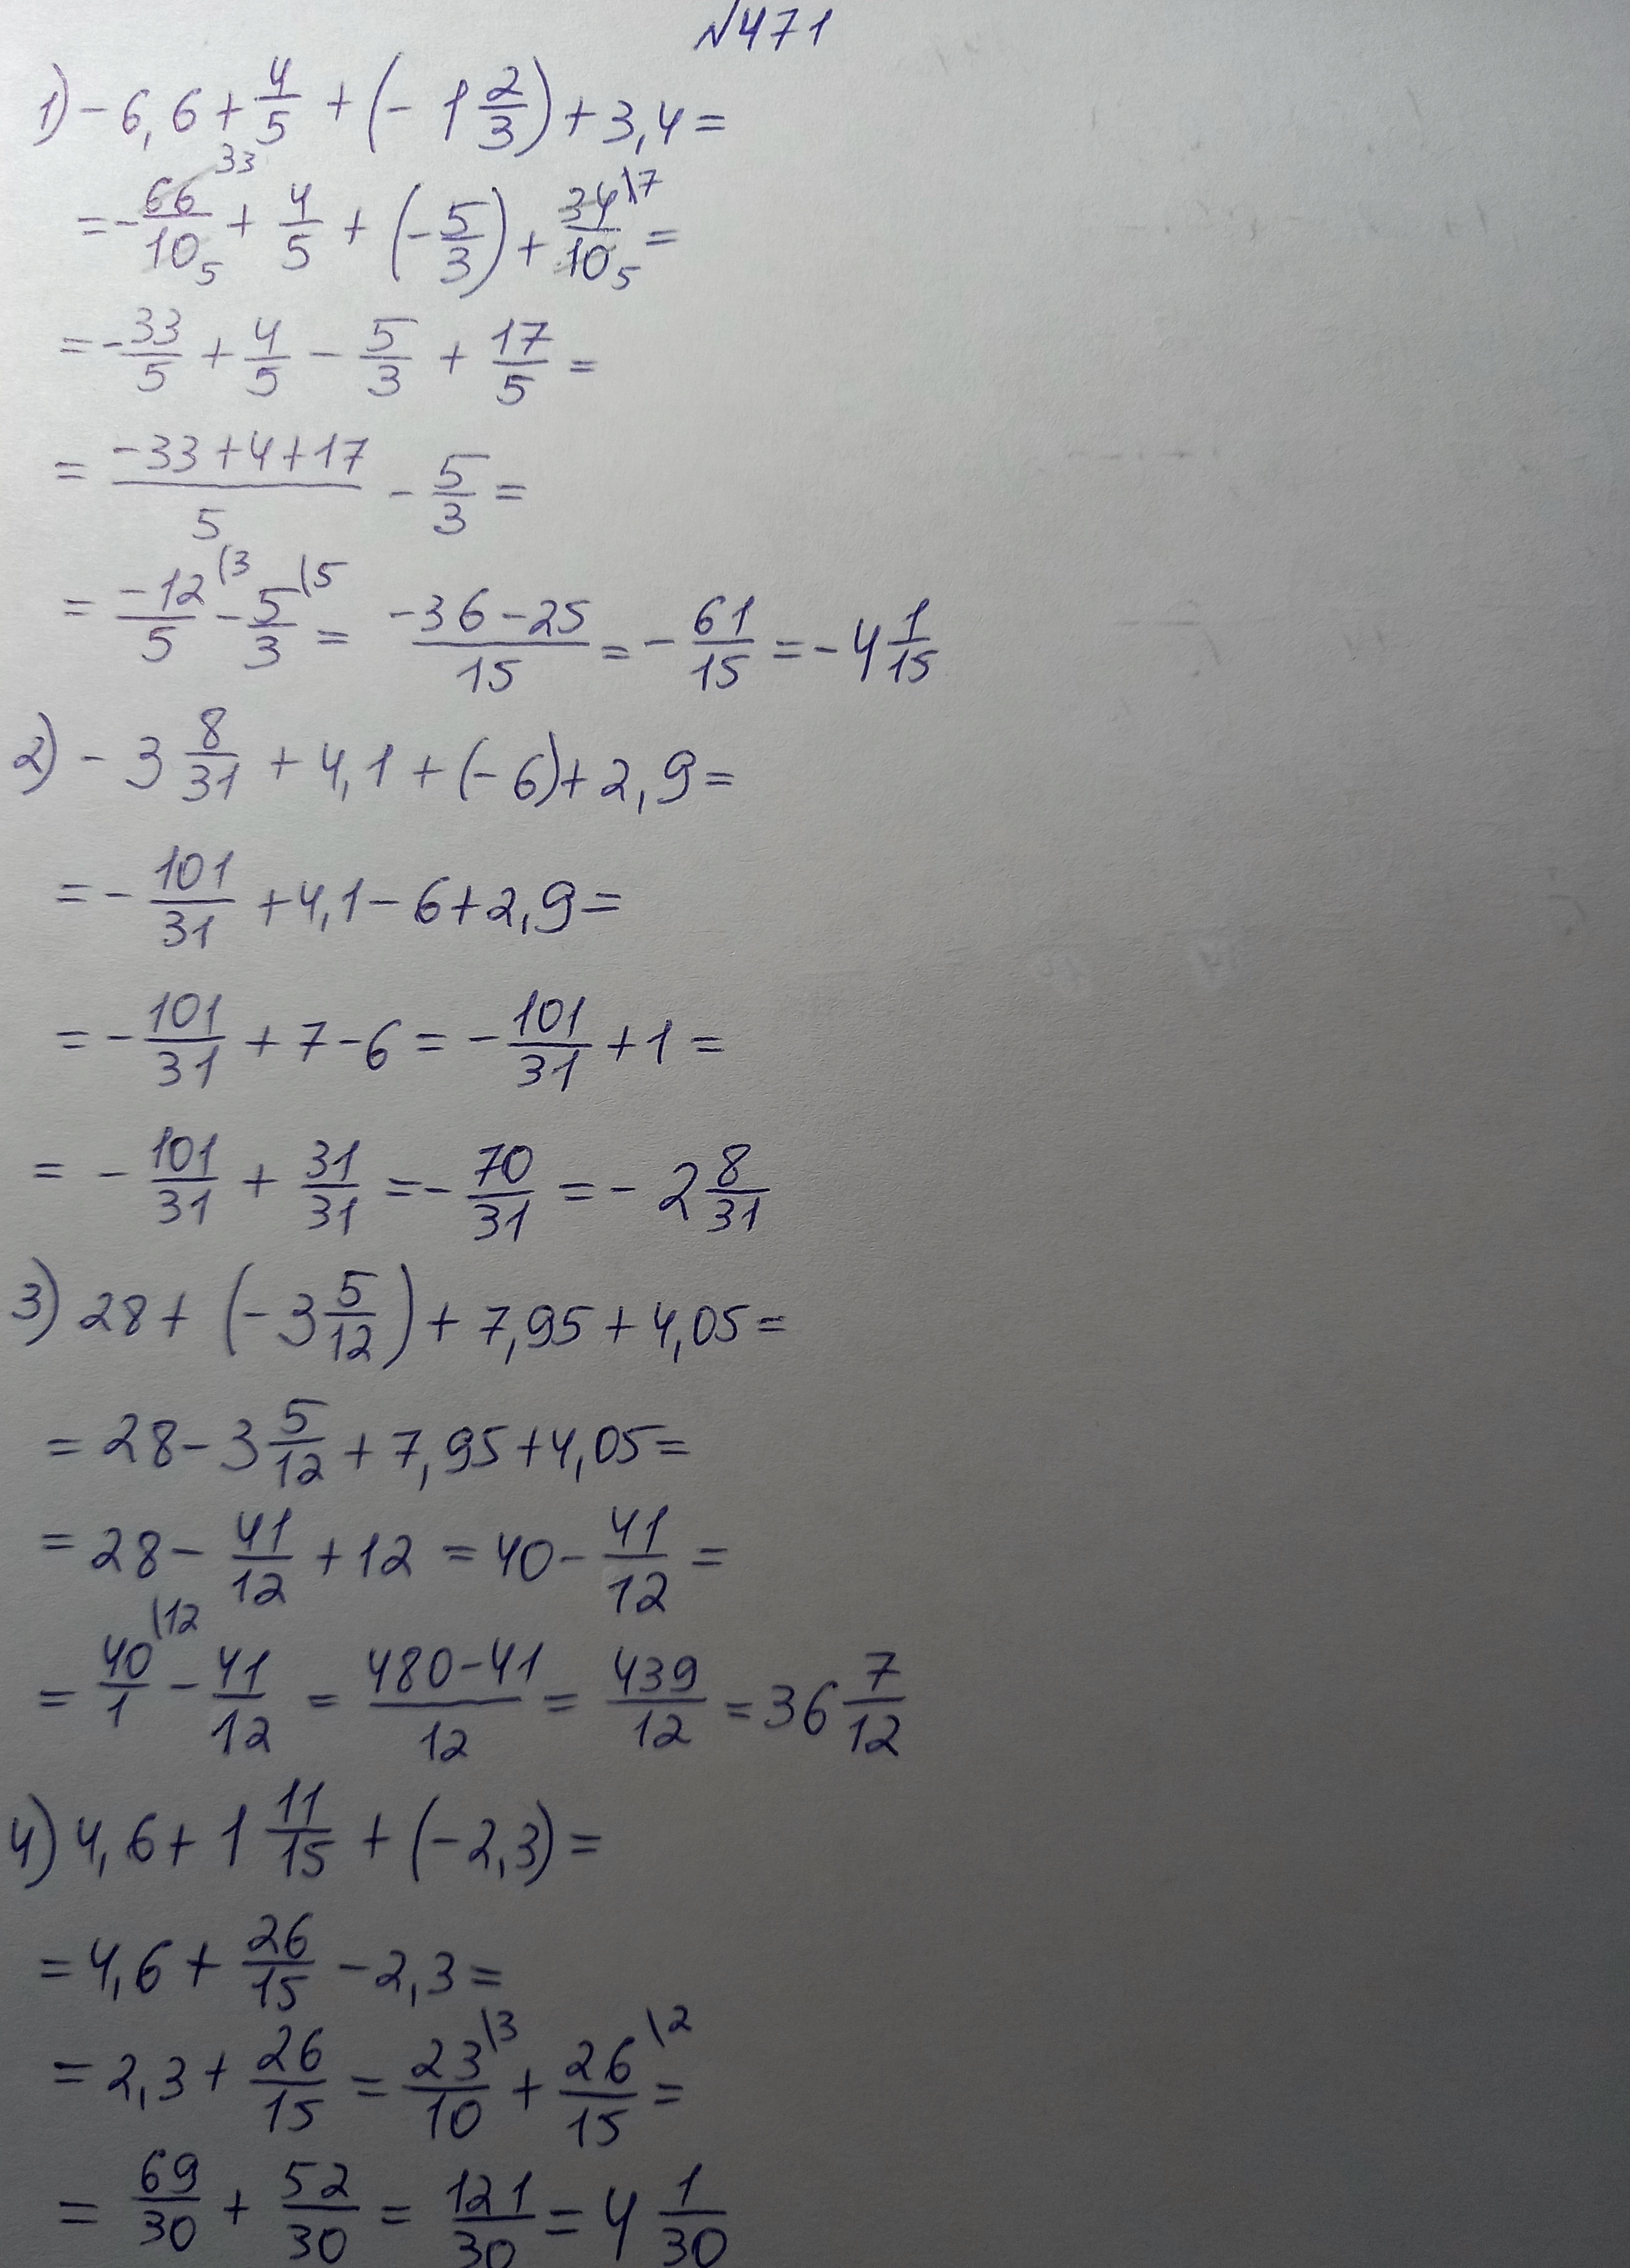 №471
1) -6,6 + 4/5 + (-1 2/3) + 3,4 =
= - 66/10 33 5 + 4/5 + (- 5/3) + 34/10 \17 5 =
= - 33/5 + 4/5 - 5/3 + 17/5 =
= (-33+4+17)/5 - 5/3 =
= -12/5 \3 - 5/3 \5 = (-36-25)/15 = - 61/15 = -4 1/15
2) -3 8/31 + 4,1 + (-6) + 2,9 =
= - 101/31 + 4,1 - 6 + 2,9 =
= - 101/31 + 7 - 6 = - 101/31 + 1 =
= - 101/31 + 31/31 = - 70/31 = -2 8/31
3) 28 + (-3 5/12) + 7,95 + 4,05 =
= 28 - 3 5/12 + 7,95 + 4,05 =
= 28 - 41/12 + 12 = 40 - 41/12 =
= 40/1 \12 - 41/12 = (480-41)/12 = 439/12 = 36 7/12
4) 4,6 + 1 11/15 + (-2,3) =
= 4,6 + 26/15 - 2,3 =
= 2,3 + 26/15 = 23/10 \3 + 26/15 \2 =
= 69/30 + 52/30 = 121/30 = 4 1/30